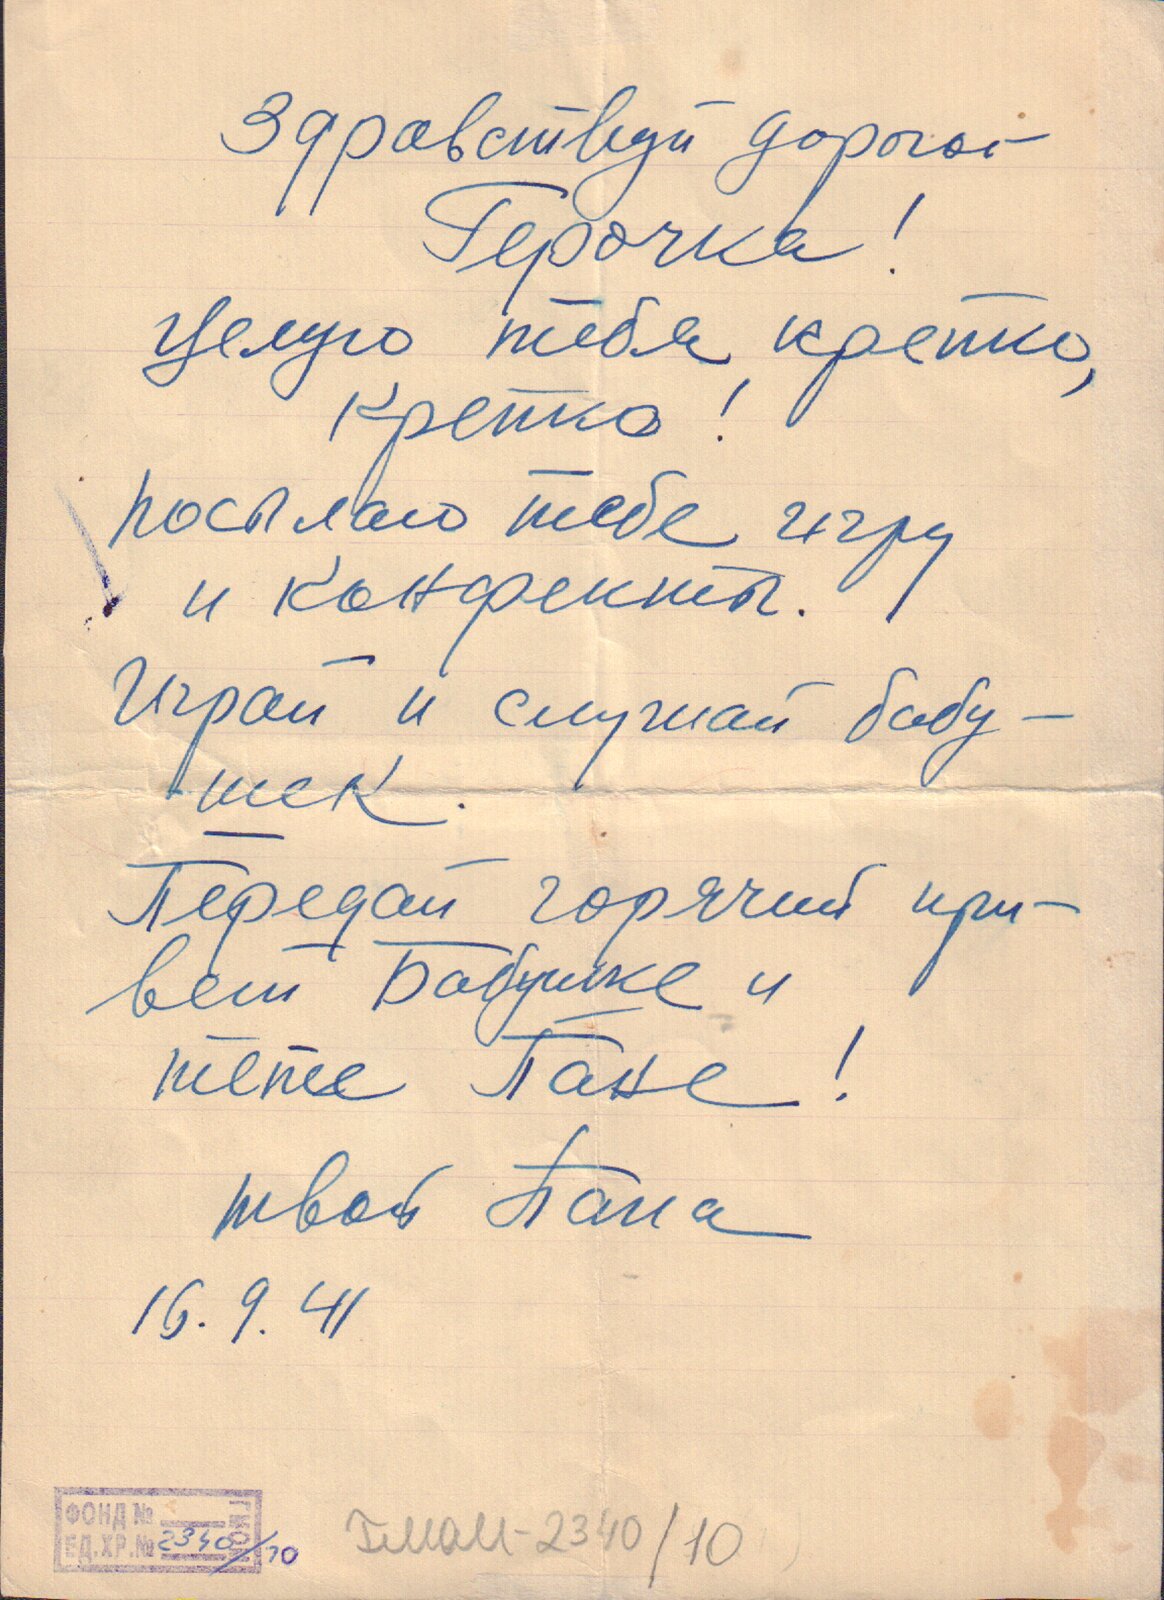 Здравствуй дорогой
Герочка!
Целую тебя крепко,
крепко!
Посылаю тебе игру
и конфекты.
Играй и слушай бабу-
шек.
Передай горячий при-
вет Бабушке и
тете Пане!
твой Папа
16.9.41
ФОНД №
ЕД.ХР.№ 2340/10
-2340/10